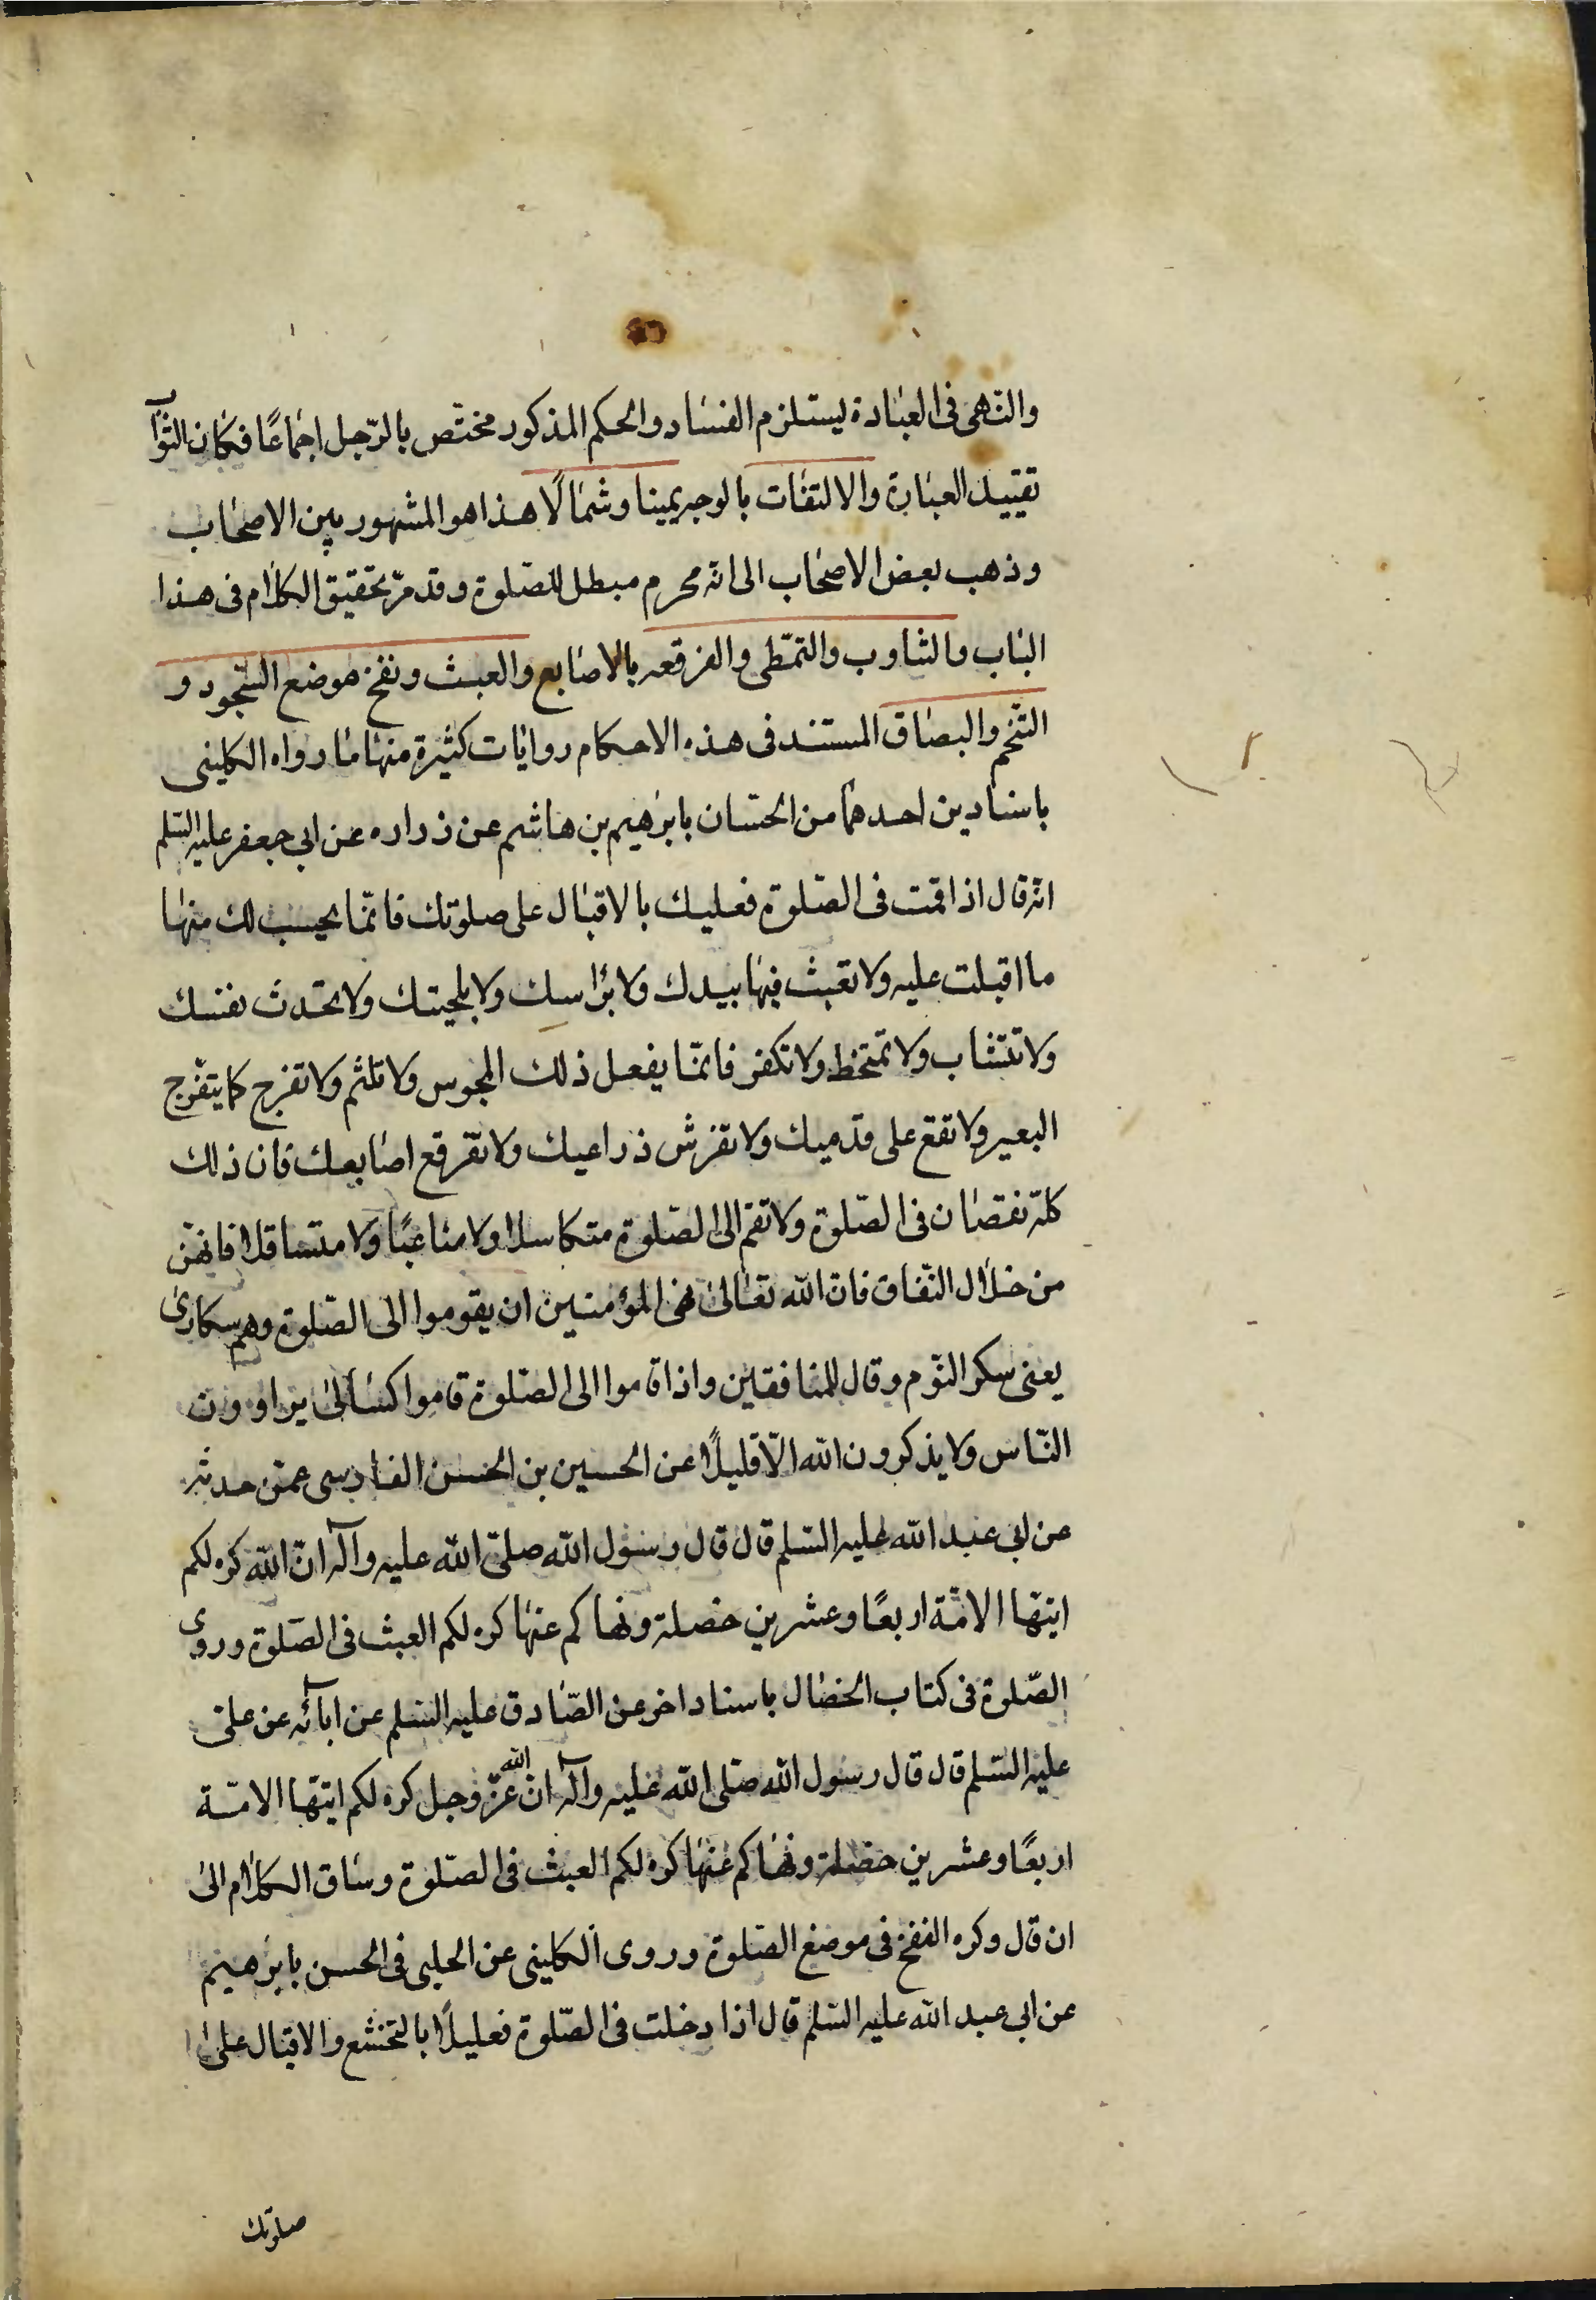 والنهى فى العبادة يستلزم الفساد والحكم المذكور مختص بالرجل اجماعا فكان الثواب
تقييد العبارة والالتفات بالوجه يمينا وشمالا هذا هو المشهور بين الاصحاب
وذهب بعض الاصحاب الى انه محرم مبطل للصلوة وقد مر تحقيق الكلام فى هذا
الباب والثاوب والتمطى والفرقعه بالاصابع والعبث ونفخ موضع السجود و
التنخم والبصاق المستند فى هذه الاحكام روايات كثيرة منها ما رواه الكلينى
باسنادين احدهما من الحسان بابرهيم بن هاشم عن زراره عن ابى جعفر عليه السلم
انه قال اذا قمت فى الصلوة فعليك بالاقبال على صلوتك فانما يحسب لك منها
ما اقبلت عليه ولا تعبث فيها بيدك ولا براسك ولا بلحيتك ولا تحدث نفسك
ولا تتثاب ولا تمتخط ولا تكفر فانما يفعل ذلك المجوس ولا تلثم ولا تفرج كما يتفرج
البعير ولا تقع على قدميك ولا تفرش ذراعيك ولا تفرقع اصابعك فان ذلك
كله نقصان فى الصلوة ولا تقم الى الصلوة متكاسلا ولا متناعسا ولا متثاقلا فانهن
من خلال النفاق فان الله تعالى نهى المؤمنين ان يقوموا الى الصلوة وهم سكارى
يعنى سكر النوم وقال للمنافقين واذا قاموا الى الصلوة قاموا كسالى يراوون
الناس ولا يذكرون الله الا قليلا عن الحسين بن الحسن الفارسى عمن حدثه
عن ابى عبد الله عليه السلم قال قال رسول الله صلى الله عليه وآله ان الله كره لكم
ايتها الامة اربعا وعشرين خصلة ونهاكم عنها كره لكم العبث فى الصلوة وروى
الصلوة فى كتاب الخصال باسناد اخر عن الصادق عليه السلم عن ابآئه عن على
عليه السلم قال قال رسول الله صلى الله عليه وآله ان الله عز وجل كره لكم ايتها الامة
اربعا وعشرين خصلة ونهاكم عنها كره لكم العبث فى الصلوة وساق الكلام الى
ان قال وكره النفخ فى موضع الصلوة وروى الكلينى عن الحلبى فى الحسن بابرهيم
عن ابى عبد الله عليه السلم قال اذا دخلت فى الصلوة فعليك بالتخشع والاقبال على
صلوتك